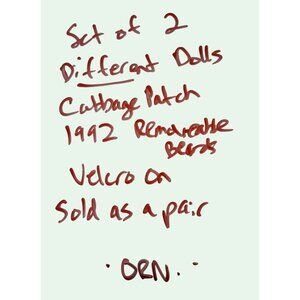 Set of 2
Different Dolls
Cabbage Patch
1992 Removeable
Beards
Velcro on
Sold as a pair
· ORN. ·